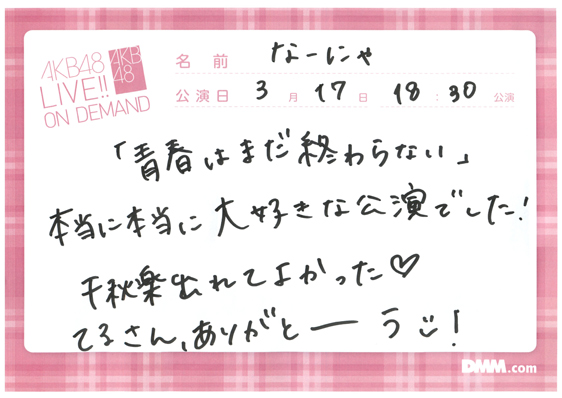 AKB48
LIVE!!
ON DEMAND
AKB
48
名前 なーにゃ
公演日 3月17日 18:30公演
「青春はまだ終わらない」
本当に本当に大好きな公演でした!
千秋楽出れてよかった♡
てるさん、ありがとーう!
DMM.com